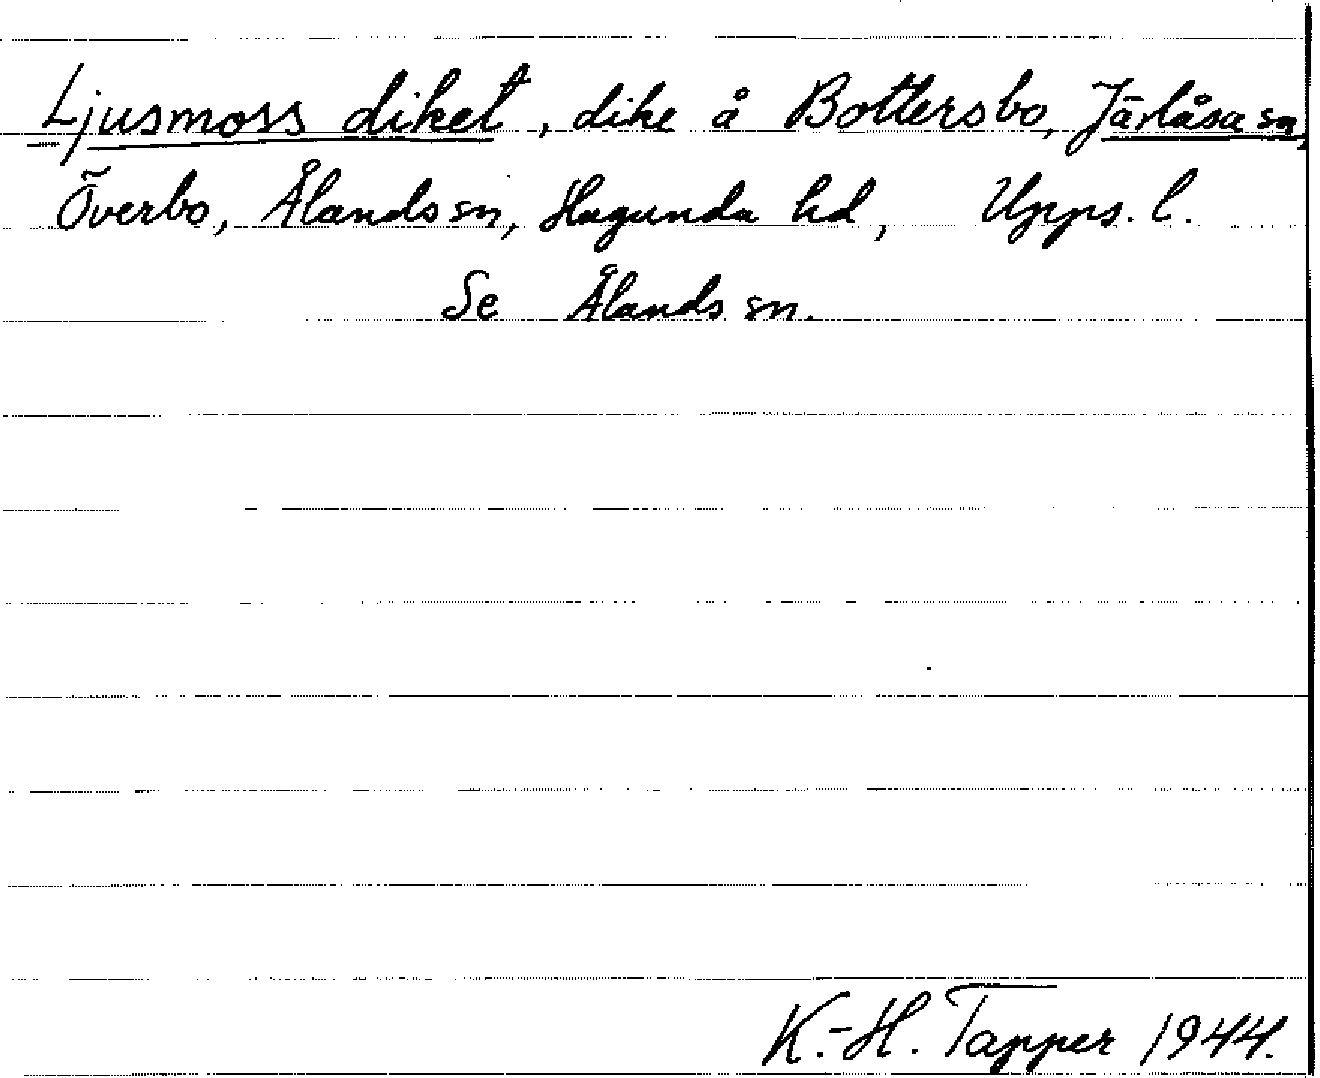 Ljusmoss diket, dike å Bottersbo, Järlåsa sn,
Överbo, Ålands sn, Hagunda hd, Upps. l.
Se Ålands sn.
K.-H. Tapper 1944.